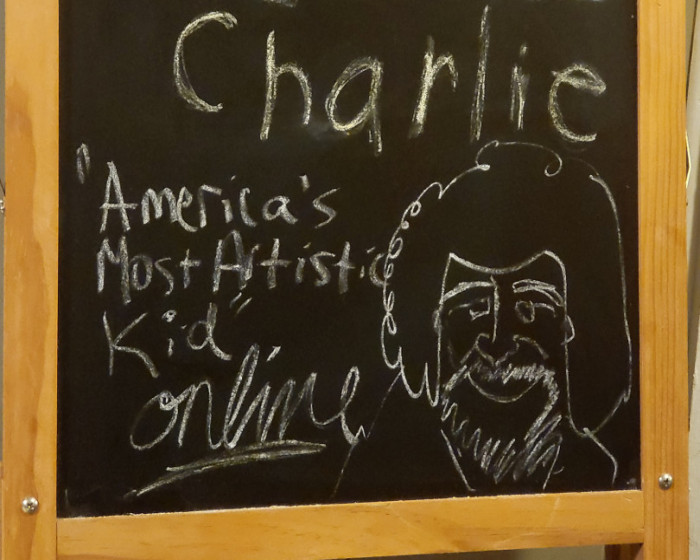 Charlie
"America's
Most Artistic
Kid"
online